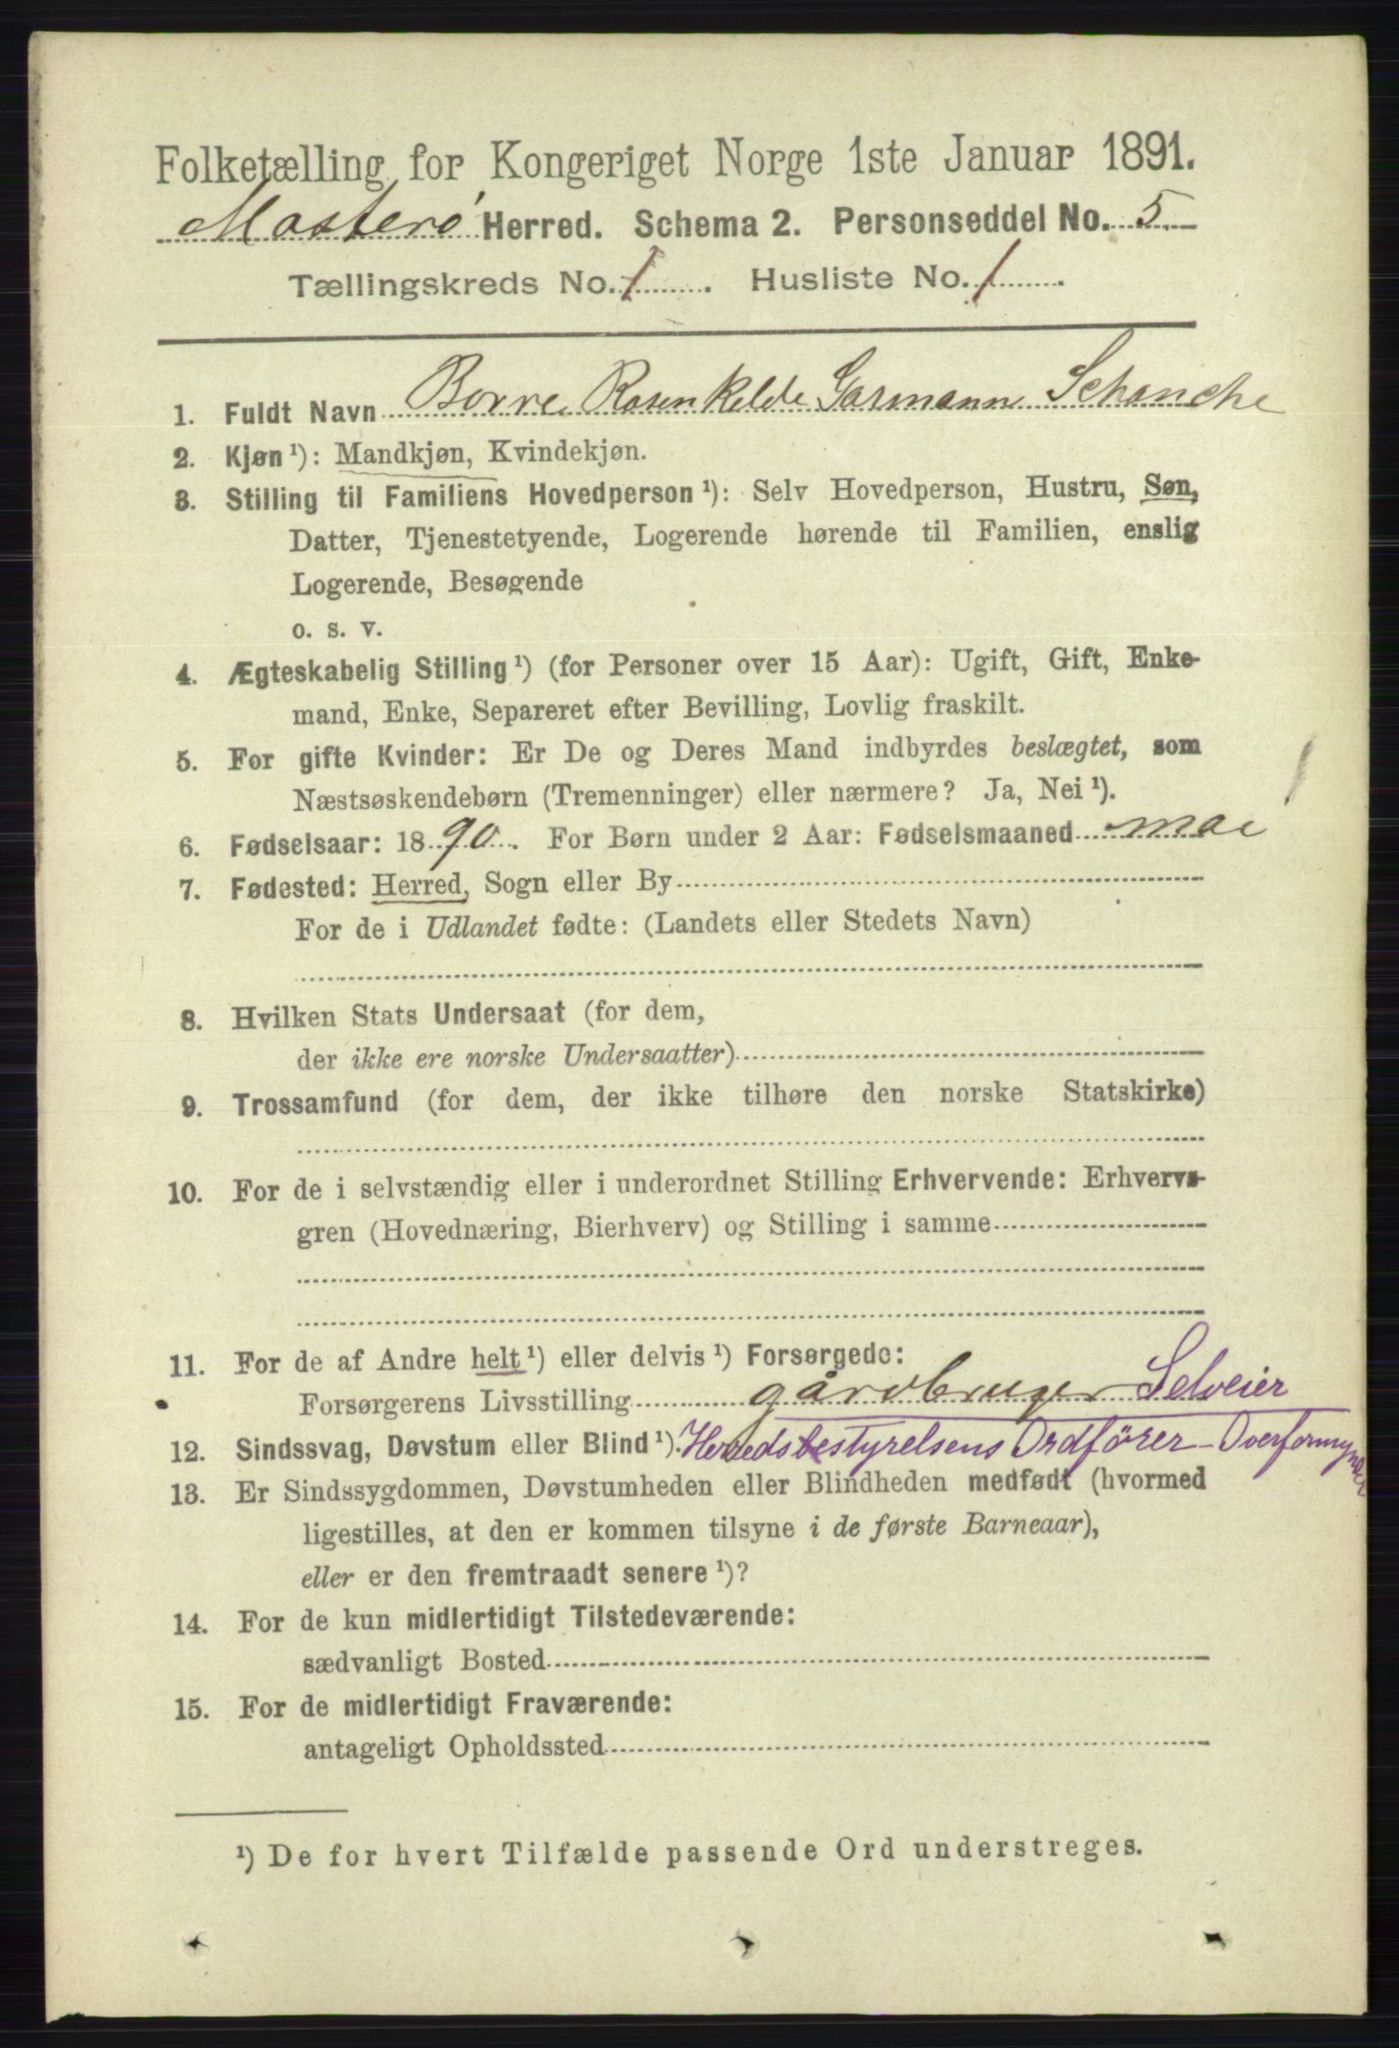 Folketælling for Kongeriget Norge 1ste Januar 1891.
Mosterø Herred. Schema 2. Personseddel No. 5.
Tællingskreds No. 1. Husliste No. 1.
1. Fuldt Navn Borre Rosenkilde Garmann Schanche
2. Kjøn¹): Mandkjøn, Kvindekjøn.
3. Stilling til Familiens Hovedperson¹): Selv Hovedperson, Hustru, Søn,
Datter, Tjenestetyende, Logerende hørende til Familien, enslig
Logerende, Besøgende
o. s. v.
4. Ægteskabelig Stilling¹) (for Personer over 15 Aar): Ugift, Gift, Enke-
mand, Enke, Separeret efter Bevilling, Lovlig fraskilt.
5. For gifte Kvinder: Er De og Deres Mand indbyrdes beslægtet, som
Næstsøskendebørn (Tremenninger) eller nærmere? Ja, Nei¹).
6. Fødselsaar: 1890. For Børn under 2 Aar: Fødselsmaaned mai
7. Fødested: Herred, Sogn eller By
For de i Udlandet fødte: (Landets eller Stedets Navn)
8. Hvilken Stats Undersaat (for dem,
der ikke ere norske Undersaatter)
9. Trossamfund (for dem, der ikke tilhøre den norske Statskirke)
10. For de i selvstændig eller i underordnet Stilling Erhvervende: Erhvervs-
gren (Hovednæring, Bierhverv) og Stilling i samme
11. For de af Andre helt¹) eller delvis¹) Forsørgede:
Forsørgerens Livsstilling gårdbruger Selveier
12. Sindssvag, Døvstum eller Blind¹). Herredsbestyrelsens Ordfører - Overformynder
13. Er Sindssygdommen, Døvstumheden eller Blindheden medfødt (hvormed
ligestilles, at den er kommen tilsyne i de første Barneaar),
eller er den fremtraadt senere¹)?
14. For de kun midlertidigt Tilstedeværende:
sædvanligt Bosted
15. For de midlertidigt Fraværende:
antageligt Opholdssted
¹) De for hvert Tilfælde passende Ord understreges.